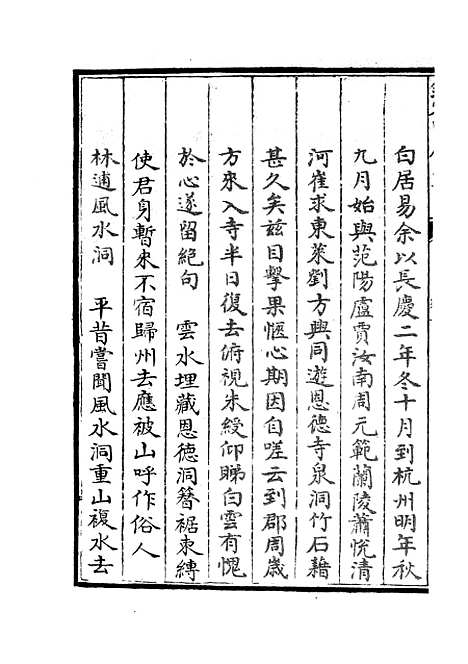 白居易余以長慶二年冬十月到杭州明年秋
九月始與范陽盧賈汝南周元範蘭陵蕭悅清
河崔求東萊劉方輿同遊恩德寺泉洞竹石藉
甚久矣茲目擊果愜心期因自嗟云到郡周歲
方來入寺半日復去俯視朱綬仰睇白雲有愧
於心遂留絕句　雲水埋藏恩德洞簪裾束縛
使君身暫來不宿歸州去應被山呼作俗人
林逋風水洞　平昔嘗聞風水洞重山複水去